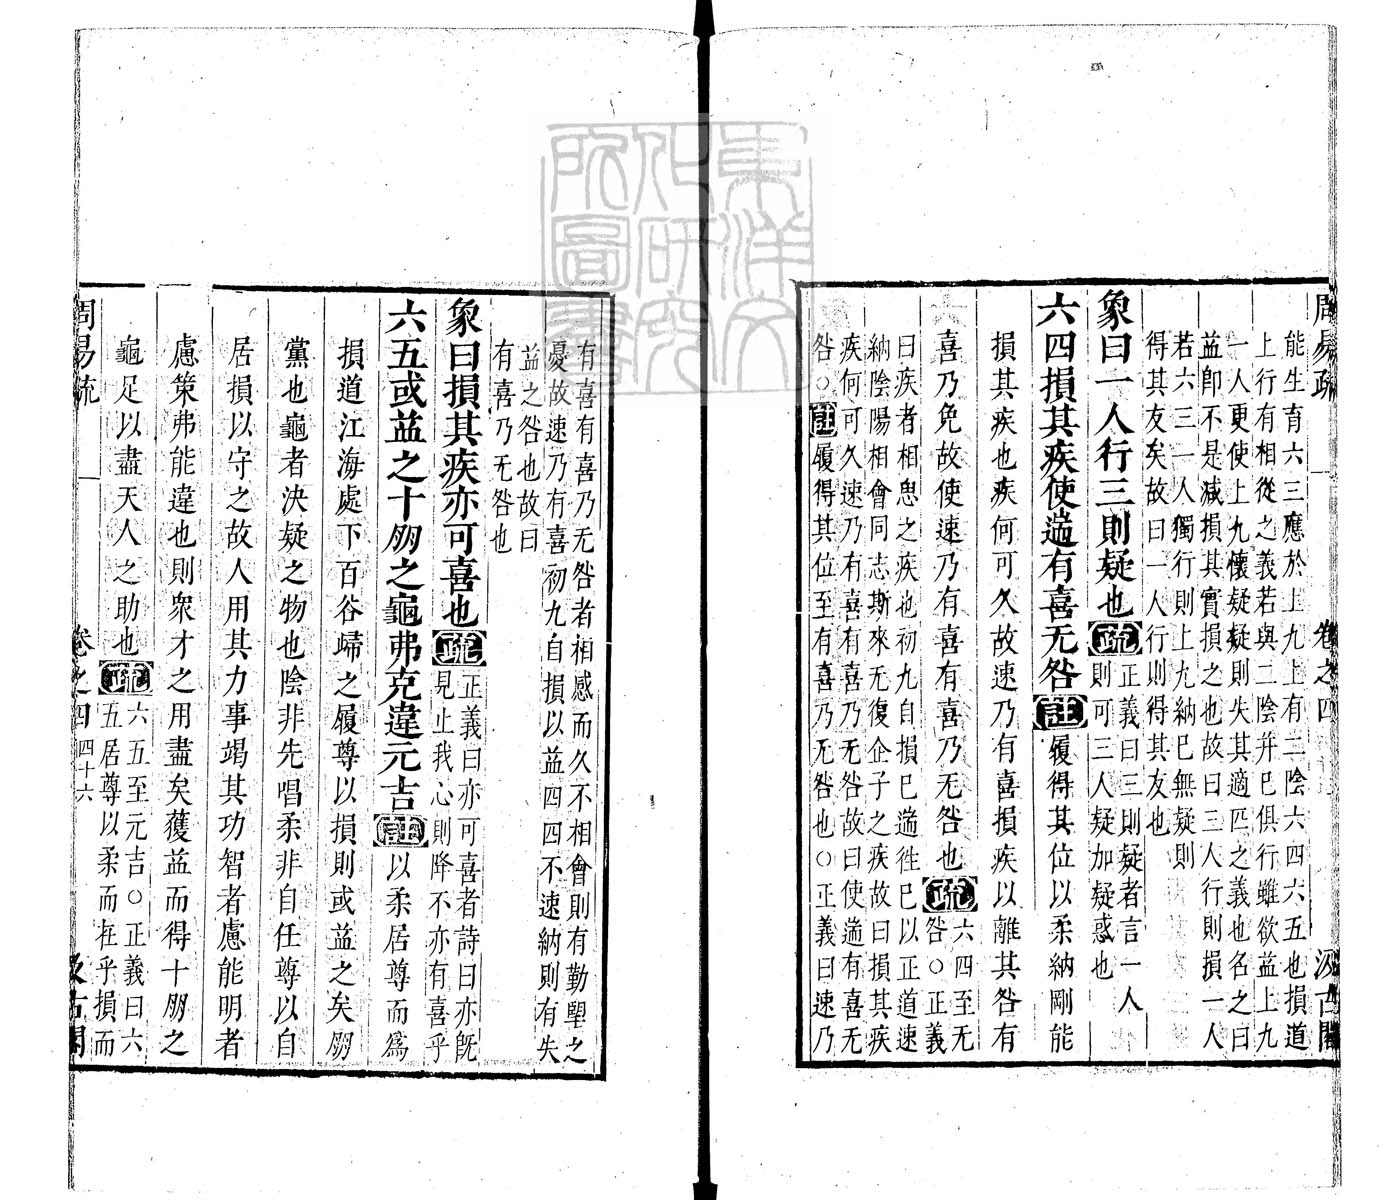 能生育六三應於上九上有二陰六四六五也損道
上行有相從之義若與二陰并已俱行雖欲益上九
一人更使上九懷疑疑則失其適匹之義也名之曰
益卽不是減損其實損之也故曰三人行則損一人
若六三一人獨行則上九納已無疑則
得其友矣故曰一人行則得其友也
象曰一人行三則疑也疏正義曰三則疑者言一人
則可三人疑加疑惑也
六四損其疾使遄有喜无咎註履得其位以柔納剛能
損其疾也疾何可久故速乃有喜損疾以離其咎有
喜乃免故使速乃有喜有喜乃无咎也疏六四至无
咎○正義
曰疾者相思之疾也初九自損已遄往已以正道速
納陰陽相會同志斯來无復企子之疾故曰損其疾
疾何可久速乃有喜有喜乃无咎故曰使遄有喜无
咎○註履得其位至有喜乃无咎也○正義曰速乃
有喜有喜乃无咎者相感而久不相會則有勤望之
憂故速乃有喜初九自損以益四四不速納則有失
益之咎也故曰
有喜乃无咎也
象曰損其疾亦可喜也疏正義曰亦可喜者詩曰亦旣
見止我心則降不亦有喜乎
六五或益之十朋之龜弗克違元吉註以柔居尊而爲
損道江海處下百谷歸之履尊以損則或益之矣朋
黨也龜者決疑之物也陰非先唱柔非自任尊以自
居損以守之故人用其力事竭其功智者慮能明者
慮策弗能違也則衆才之用盡矣獲益而得十朋之
龜足以盡天人之助也疏六五至元吉○正義曰六
五居尊以柔而在乎損而
周易疏
卷之四
四十六
汲古閣